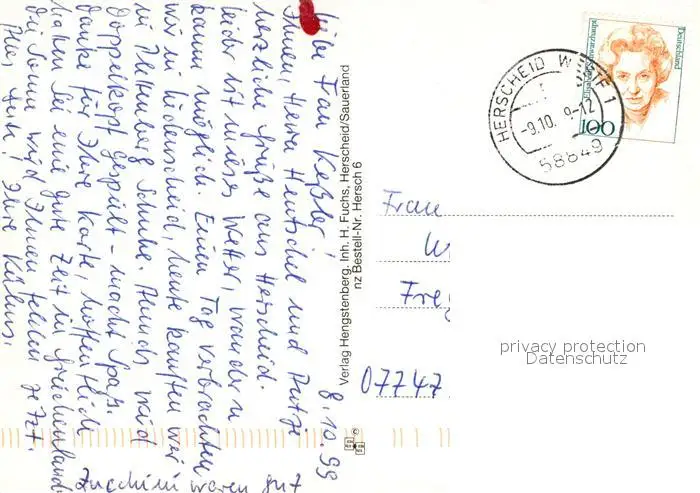 8.10.99
Liebe Frau Keßler!
Ihnen, Herrn Hentschel und Putzi
herzliche Grüße aus Herscheid.
Leider ist mieses Wetter, wandern
kaum möglich. Einen Tag verbrachten
wir in Lüdenscheid, heute kauften wir
in Plettenberg Schuhe. Abends wird
Doppelkopf gespielt - macht Spaß.
Danke für Ihre Karte, hoffentlich
haben Sie eine gute Zeit in Griechenland.
Die Sonne wird Ihnen fehlen jetzt.
Alles Gute! Ihre Kühns.
Zucchini waren gut
Verlag Hengstenberg, Inh. H. Fuchs, Herscheid/Sauerland
nz Bestell-Nr. Hersch 6
Deutschland
100
HERSCHEID WESTF 1
-9.10. 9-12
58849
Frau
Frey
07747
privacy protection
Datenschutz